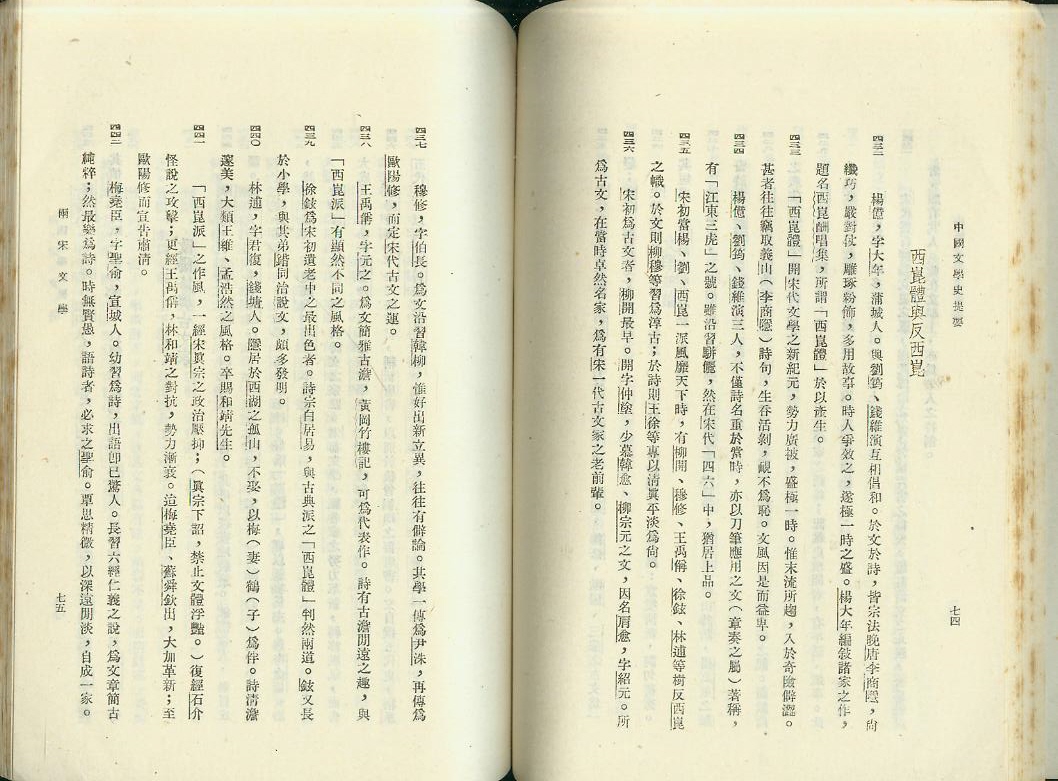 中國文學史提要
七四
西崑體與反西崑
四三二 楊億，字大年，蒲城人。與劉筠、錢維演互相倡和。於文於詩，皆宗法晚唐李商隱，尙
纖巧，嚴對仗，雕琢粉飾，多用故事。時人爭效之，遂極一時之盛。楊大年編敍諸家之作，
題名西崑酬唱集，所謂「西崑體」於以產生。
四三三 「西崑體」開宋代文學之新紀元，勢力廣被，盛極一時。惟末流所趨，入於奇險僻澀。
甚者往往竊取義山（李商隱）詩句，生吞活剝，靦不爲恥。文風因是而益卑。
四三四 楊億、劉筠、錢維演三人，不僅詩名重於當時，亦以刀筆應用之文（章奏之屬）著稱，
有「江東三虎」之號。雖沿習駢儷，然在宋代「四六」中，猶居上品。
四三五 宋初當楊、劉、西崑一派風靡天下時，有柳開、穆修、王禹偁、徐鉉、林逋等樹反西崑
之幟。於文則柳穆等習爲淳古；於詩則王徐等專以淸眞平淡爲尙。
四三六 宋初爲古文者，柳開最早。開字仲塗，少慕韓愈、柳宗元之文，因名肩愈，字紹元。所
爲古文，在當時卓然名家，爲有宋一代古文家之老前輩。
四三七 穆修，字伯長。爲文沿習韓柳，惟好出新立異，往往有僻論。其學一傳爲尹洙，再傳爲
歐陽修，而定宋代古文之運。
四三八 王禹偁，字元之。爲文簡雅古澹，黃岡竹樓記，可爲代表作。詩有古澹閒遠之趣，與
「西崑派」有顯然不同之風格。
四三九 徐鉉爲宋初遺老中之最出色者。詩宗白居易，與古典派之「西崑體」判然兩道。鉉又長
於小學，與其弟鍇同治說文，頗多發明。
四四〇 林逋，字君復，錢塘人。隱居於西湖之孤山，不娶，以梅（妻）鶴（子）爲伴。詩淸澹
邃美，大類王維、孟浩然之風格。卒賜和靖先生。
四四一 「西崑派」之作風，一經宋眞宗之政治壓抑；（眞宗下詔，禁止文體浮艷。）復經石介
怪說之攻擊；更經王禹偁，林和靖之對抗，勢力漸衰。迨梅堯臣、蘇舜欽出，大加革新；至
歐陽修而宣吿肅淸。
四四二 梅堯臣，字聖俞，宣城人。幼習爲詩，出語卽已驚人。長習六經仁義之說，爲文章簡古
純粹；然最樂爲詩。時無賢愚，語詩者，必求之聖俞。覃思精微，以深遠閒淡，自成一家。
兩宋文學
七五